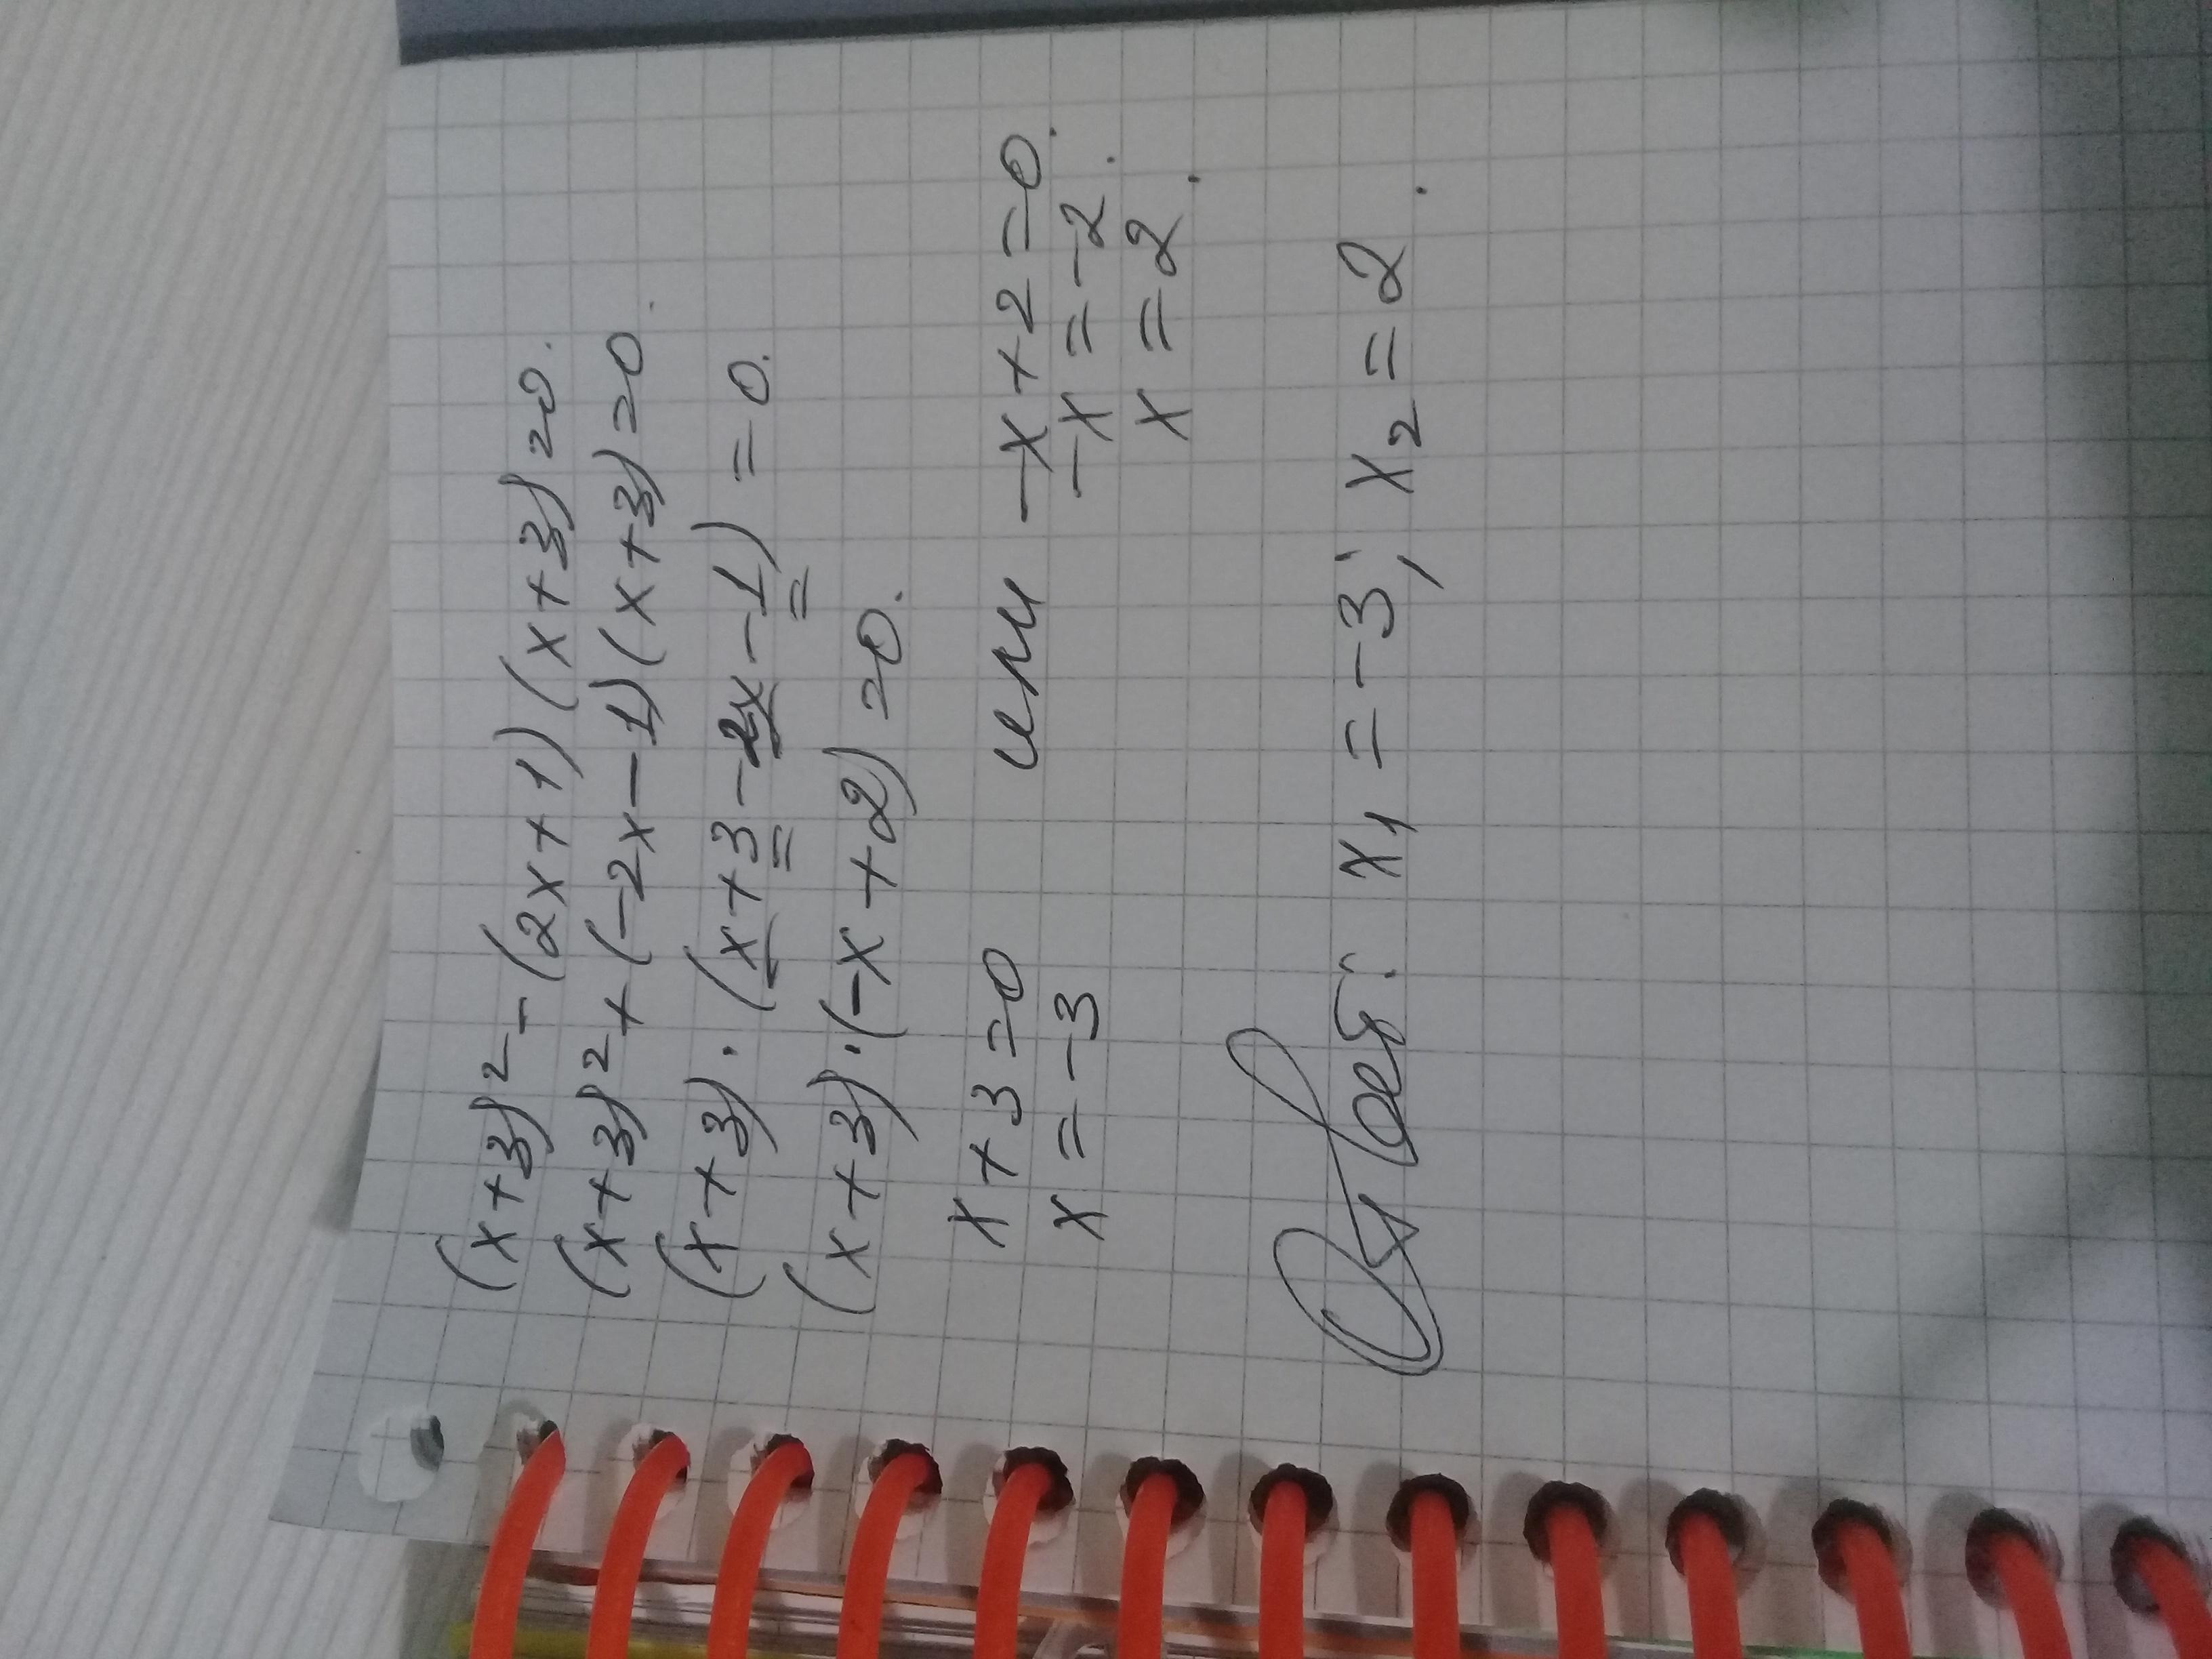 (x+3)² - (2x+1)(x+3)=0.
(x+3)² + (-2x-1)(x+3)=0.
(x+3)·(x+3-2x-1)=0.
(x+3)·(-x+2)=0.
x+3=0 или -x+2=0.
x=-3 -x=-2.
x=2.
Ответ: x₁=-3; x₂=2.